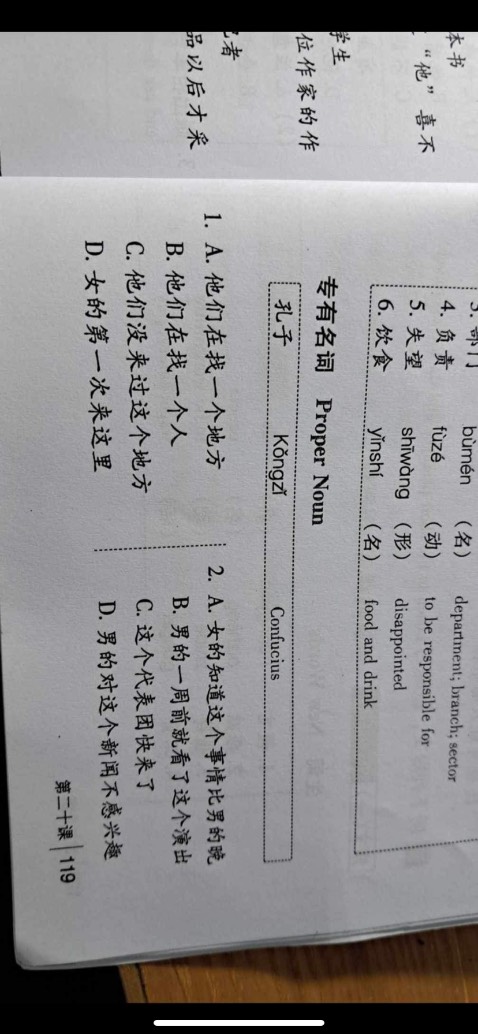 本书
“他”喜不
学生
位作家的作
者
品以后才采
3. 部门 bùmén （名） department; branch; sector
4. 负责 fùzé （动） to be responsible for
5. 失望 shīwàng （形） disappointed
6. 饮食 yǐnshí （名） food and drink
专有名词 Proper Noun
孔子 Kǒngzǐ Confucius
1. A. 他们在找一个地方
B. 他们在找一个人
C. 他们没来过这个地方
D. 女的第一次来这里
2. A. 女的知道这个事情比男的晚
B. 男的一周前就看了这个演出
C. 这个代表团快来了
D. 男的对这个新闻不感兴趣
第二十课 119